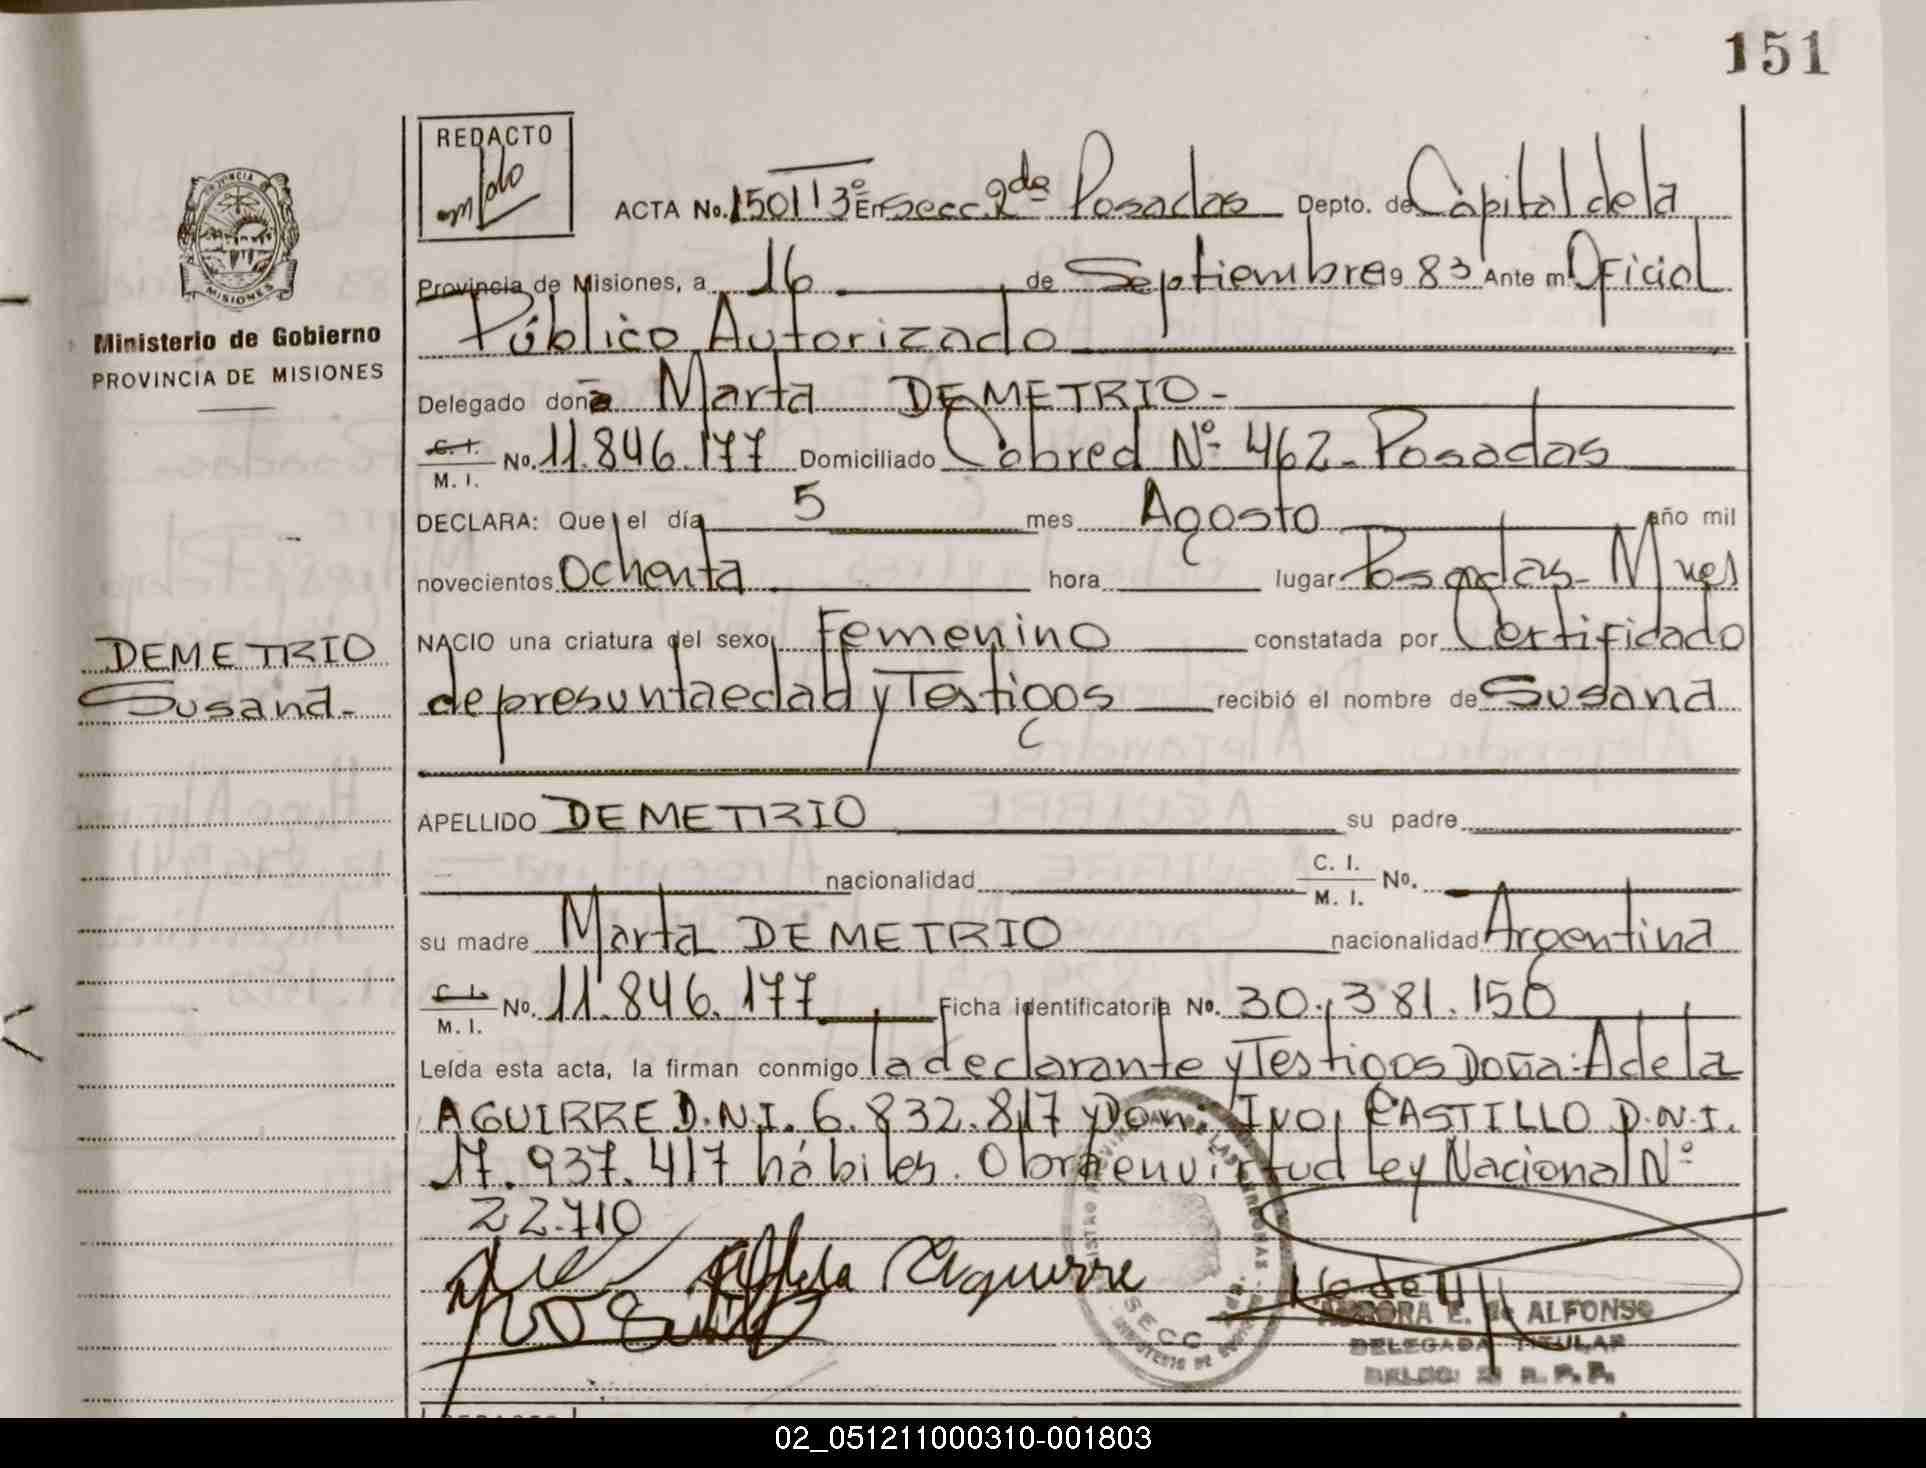 151
REDACTO
ACTA No. 150113º En Secc. 2da Posadas Depto. de Capital de la
PROVINCIA
MISIONES
Provincia de Misiones, a 16 de Septiembre 19 83 Ante mí Oficial
Ministerio de Gobierno
PROVINCIA DE MISIONES
Público Autorizado
Delegado doña Marta DEMETRIO -
C. I. M. I. No. 11.846.177 Domiciliado Cobred Nº 462 - Posadas
DECLARA: Que el día 5 mes Agosto año mil
novecientos Ochenta hora lugar Posadas - Mnes
NACIO una criatura del sexo Femenino constatada por Certificado
DEMETRIO
Susana -
de presunta edad y Testigos recibió el nombre de Susana
APELLIDO DEMETRIO su padre
nacionalidad C. I. M. I. No.
su madre Marta DEMETRIO nacionalidad Argentina
C. I. M. I. No. 11.846.177 Ficha identificatoria No. 30.381.156
Leída esta acta, la firman conmigo la declarante y Testigos Doña: Adela
AGUIRRE D.N.I. 6.832.817 y Don: IVO CASTILLO D.N.I.
17.937.417 hábiles. Obra en virtud Ley Nacional Nº
22.710
Adela Aguirre
SECC
AURORA E. de ALFONSO
DELEGADA TITULAR
R. P. P.
02_051211000310-001803